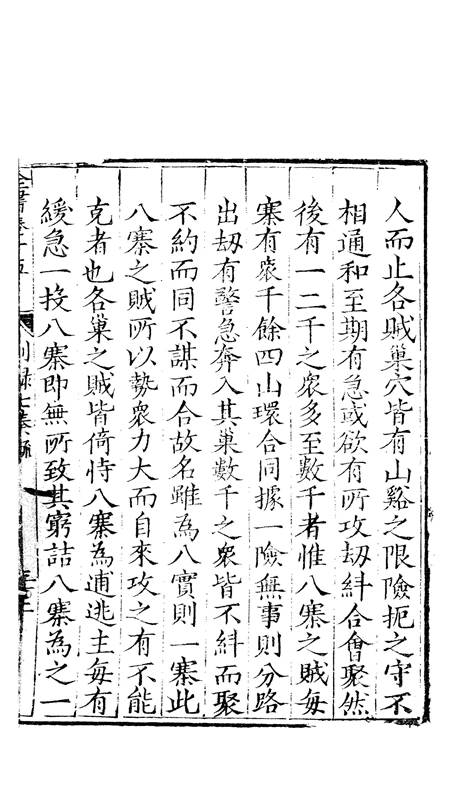 人而止各賊巢穴皆有山谿之限險扼之守不
相通和至期有急或欲有所攻刼糾合會聚然
後有一二千之衆多至數千者惟八寨之賊每
寨有衆千餘四山環合同據一險無事則分路
出刼有警急奔入其巢數千之衆皆不糾而聚
不約而同不謀而合故名雖為八實則一寨此
八寨之賊所以勢衆力大而自來攻之有不能
克者也各巢之賊皆倚恃八寨為逋逃主每有
緩急一投八寨即無所致其窮詰八寨為之一
全書卷十五
別録七奏疏